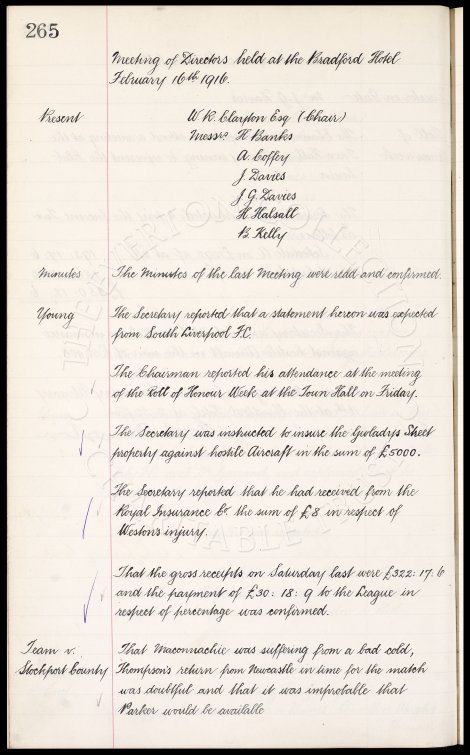 265
Meeting of Directors held at the Bradford Hotel
February 16th 1916.
Present W. R. Clayton Esq (Chair)
Messrs H Banks
A. Coffey
J. Davies
J G. Davies
H. Halsall
B. Kelly
Minutes The Minutes of the last Meeting were read and confirmed.
Young The Secretary reported that a statement hereon was expected
from South Liverpool F.C.
The Chairman reported his attendance at the meeting
of the Roll of Honour Week at the Town Hall on Friday.
The Secretary was instructed to insure the Gwladys Street
property against hostile Aircraft in the sum of £5000.
The Secretary reported that he had received from the
Royal Insurance Co. the sum of £8 in respect of
Weston's injury.
That the gross receipts on Saturday last were £322: 17: 6
and the payment of £30: 18: 9 to the League in
respect of percentage was confirmed.
Team v. That Maconnachie was suffering from a bad cold,
Stockport County Thompson's return from Newcastle in time for the match
was doubtful and that it was improbable that
Parker would be available